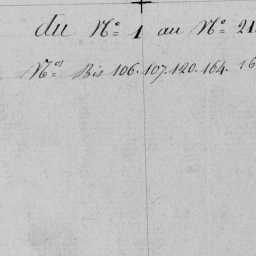 du N° 1 au N° 21
N.os Bis 106. 107. 120. 164. 16